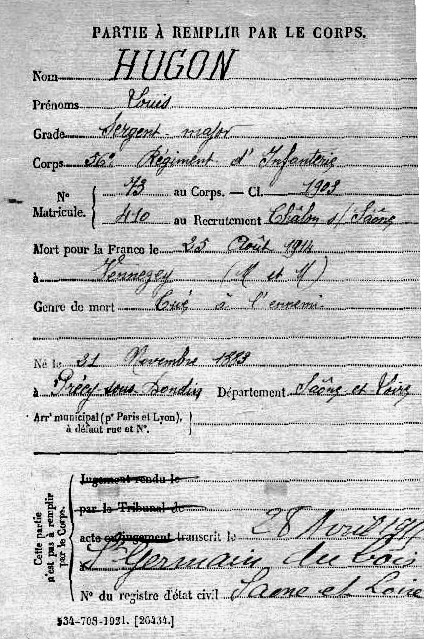 PARTIE À REMPLIR PAR LE CORPS.
Nom HUGON
Prénoms Louis
Grade Sergent-major
Corps 56e Régiment d'Infanterie
N° Matricule. 73 au Corps. — Cl. 1903
410 au Recrutement Châlon s/ Saône
Mort pour la France le 25 Août 1914
à Vennezey (M et M)
Genre de mort Tué à l'ennemi
Né le 21 Novembre 1883
à Précy-sous-Dondin Département Saône et Loire
Arrt municipal (pr Paris et Lyon),
à défaut rue et N°.
Cette partie n'est pas à remplir par le Corps.
Jugement rendu le
par le Tribunal de
acte ou jugement transcrit le 28 Avril
à St Germain du Bois
N° du registre d'état civil Saone et Loire
534-708-1921. [26434.]